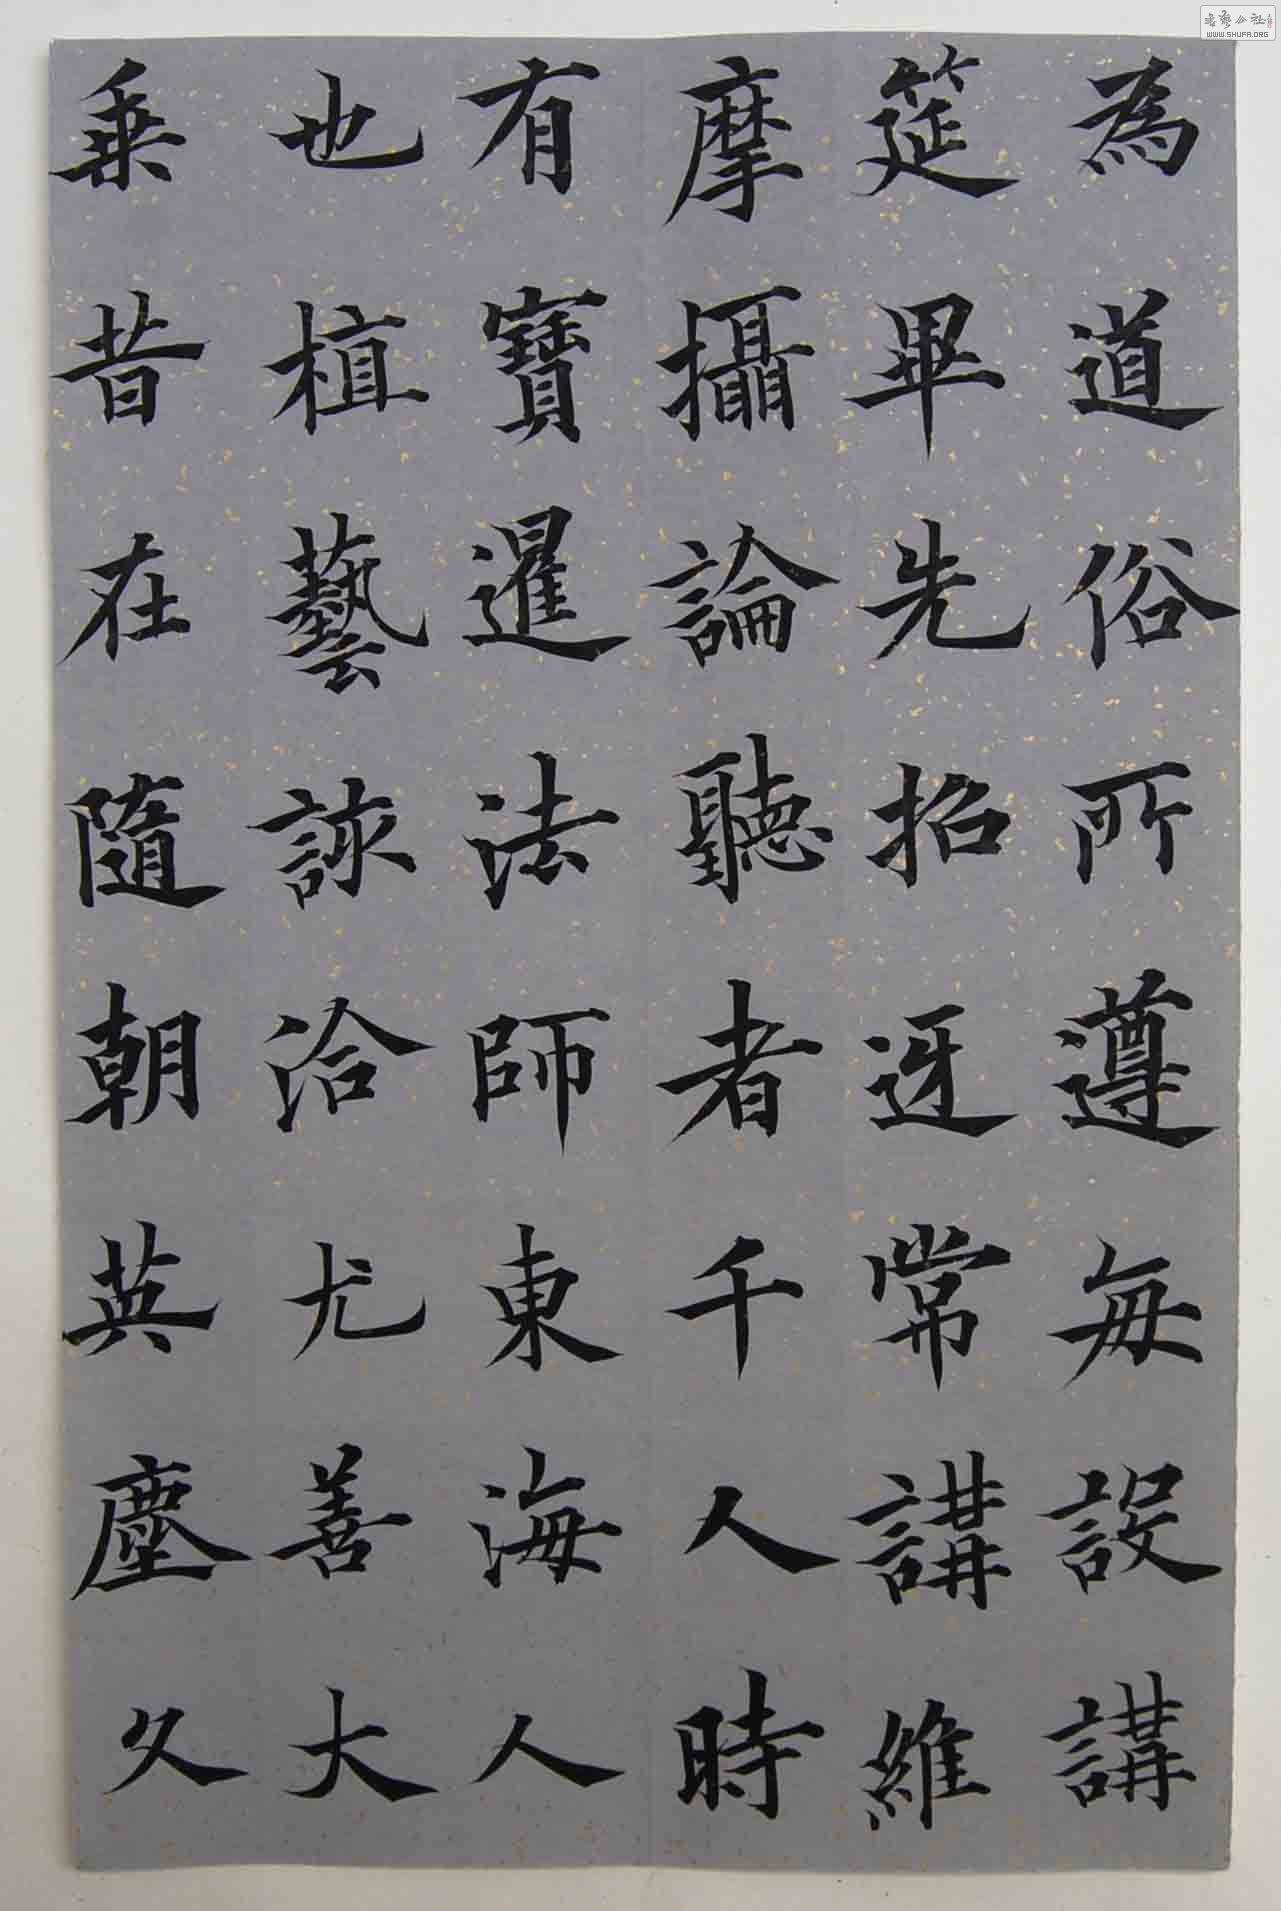 為道俗所遵每設講
筵畢先招迓常講維
摩攝論聽者千人時
有寶暹法師東海人
也植藝詠洽尤善大
乗昔在隨朝英塵久
WWW.SHUFA.ORG